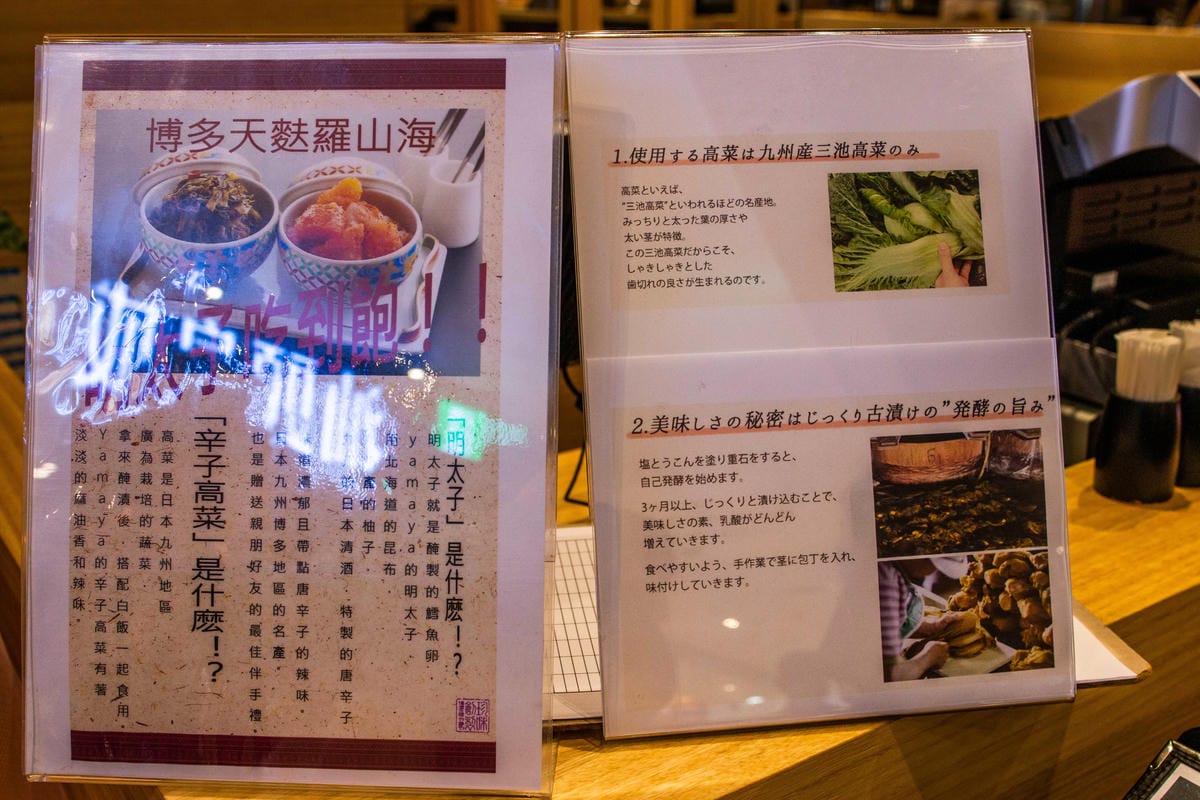 博多天麩羅山海
太子吃到飽！！
「明太子」是什麼！？
明太子就是醃製的鱈魚卵．
yamaya的明太子．
北海道的昆布
產的柚子．
的日本清酒．特製的唐辛子
濃郁且帶點唐辛子的辣味．
日本九州博多地區的名產．
也是贈送親朋好友的最佳伴手禮
「辛子高菜」是什麼！？
高菜是日本九州地區
廣為栽培的蔬菜．
拿來醃漬後．搭配白飯一起食用．
yamaya的辛子高菜有著
淡淡的麻油香和辣味．
1.使用する高菜は九州産三池高菜のみ
高菜といえば、
"三池高菜"といわれるほどの名産地。
みっちりと太った葉の厚さや
太い茎が特徴。
この三池高菜だからこそ、
しゃきしゃきとした
歯切れの良さが生まれるのです。
2.美味しさの秘密はじっくり古漬けの"発酵の旨み"
塩とうこんを塗り重石をすると、
自己発酵を始めます。
3ヶ月以上、じっくりと漬け込むことで、
美味しさの素、乳酸がどんどん
増えていきます。
食べやすいよう、手作業で茎に包丁を入れ、
味付けしていきます。